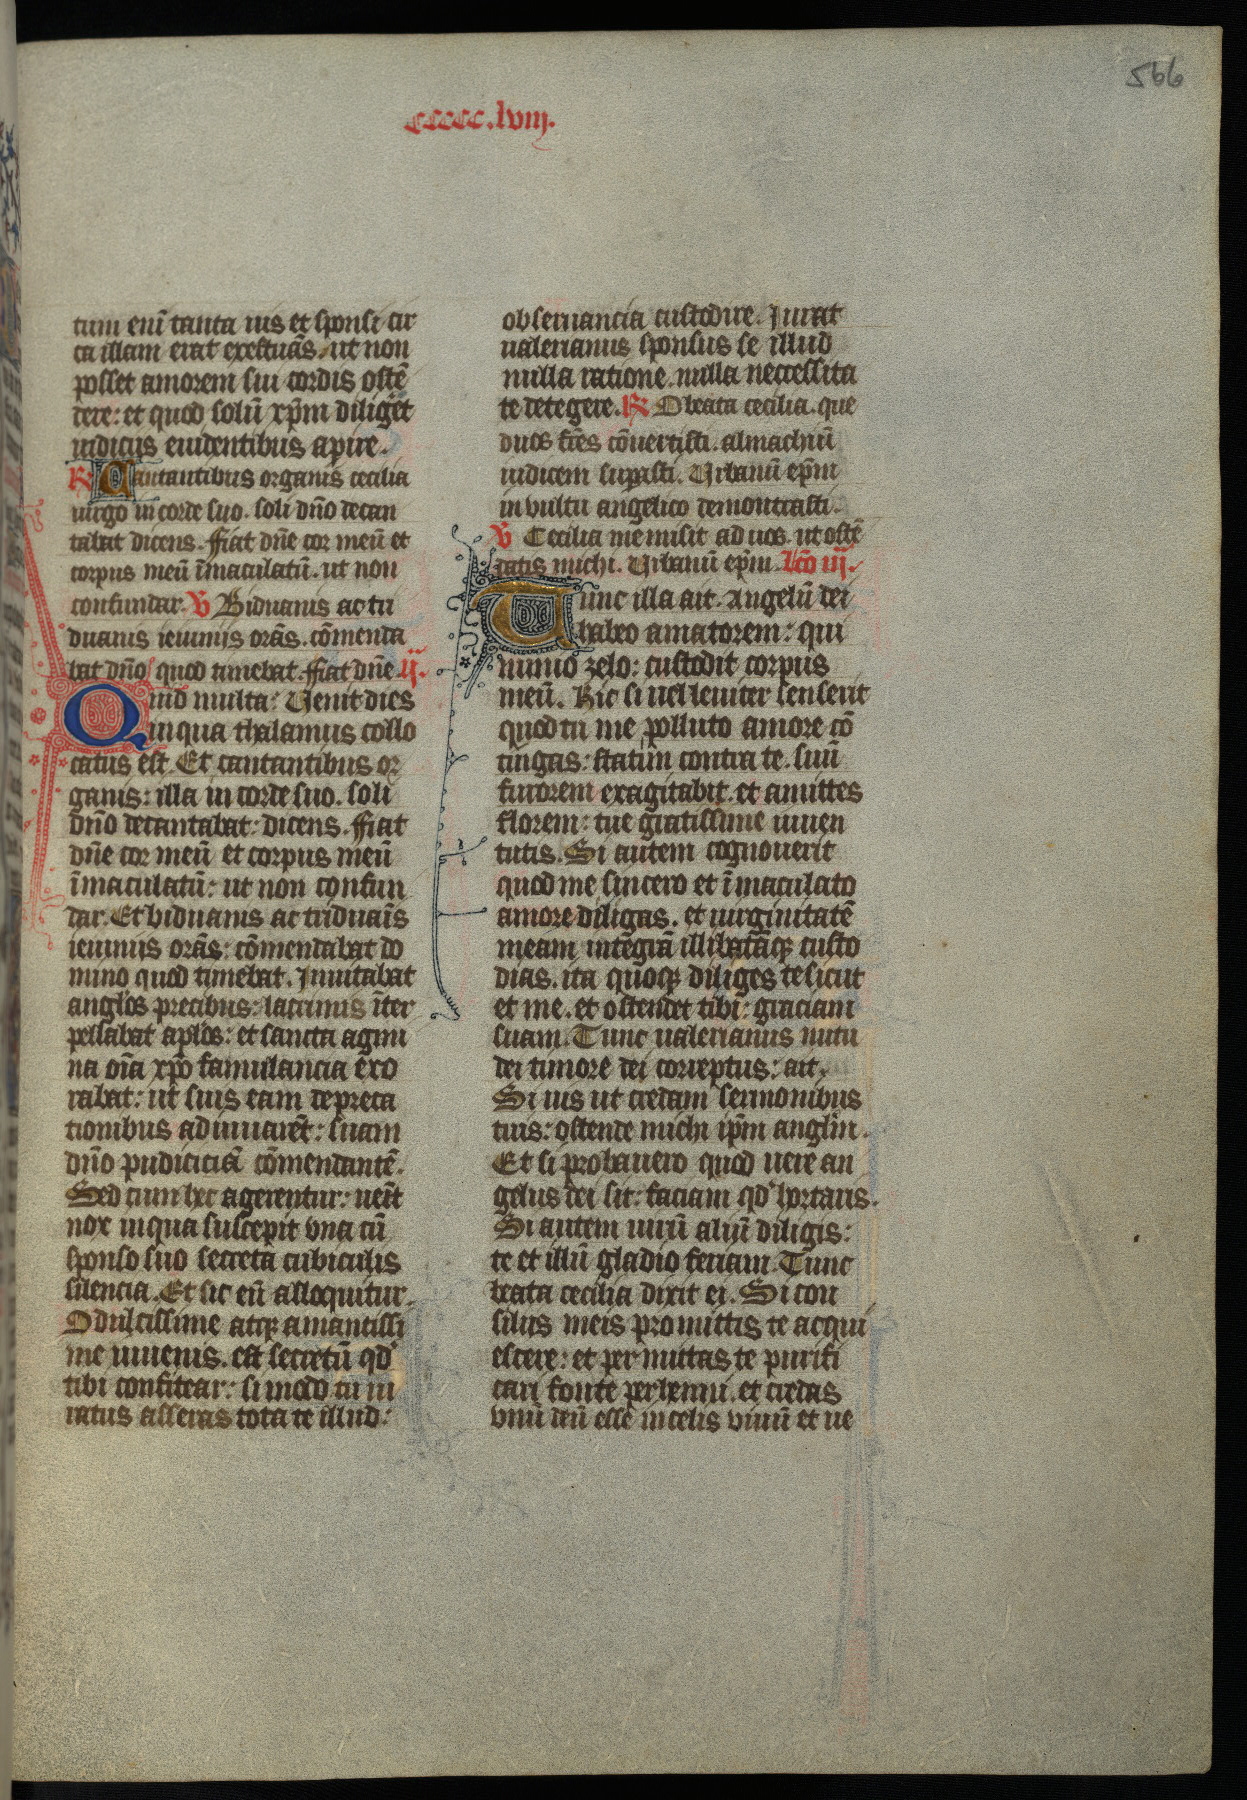 566
ccccc.lviij.
tum eni̅ tanta uis et sponsi cir
ca illam erat exestua̅s. ut non
posset amorem sui cordis oste̅
dere: et quod solu̅ xp̅m diliget
iudicijs euidentibus apire.
R Cantantibus organis cecilia
uirgo in corde suo. soli dn̅o decan
tabat dicens. ffiat dn̅e cor meu̅ et
corpus meu̅ i̅maculatu̅. ut non
confundar. V Biduanis ac tri
duanis ieiunijs ora̅s. co̅menda
bat dn̅o quod timebat. ffiat dn̅e. ij.
Quid multa: Uenit dies
in qua thalamus collo
catus est. Et cantantibus or
ganis: illa in corde suo. soli
dn̅o decantabat: dicens. ffiat
dn̅e cor meu̅ et corpus meu̅
i̅maculatu̅: ut non confun
dar. Et biduanis ac triduai̅s
ieiuniis ora̅s: co̅mendabat do
mino quod timebat. Inuitabat
anglo̅s precibus: lacrimis i̅ter
pellabat aplo̅s: et sancta agmi
na oi̅a xp̅o famulancia exo
rabat: ut suis eam depreca
tionibus adiuuare̅t: suam
dn̅o pudicicia̅ co̅mendante̅.
Sed cum hec agerentur: uen̅it
nox in qua suscepit vna cu̅
sponso suo secreta cubiculis
silencia. Et sic eu̅ alloquitur.
O dulcissime atq; amantissi
me iuuenis. est secretu̅ qd'
tibi confitear: si modo tu iu
ratus asseras tota te illud:
obseruancia custodire. Iurat
ualerianus sponsus se illud
nulla ratione. nulla necessita
te detegere. R O beata cecilia. que
duos fr̅es co̅uertisti. almachiu̅
iudicem supasti. Urbanu̅ ep̅m
in vultu angelico demonstrasti.
V Cecilia me misit ad uos. ut oste̅
datis michi. Urbanu̅ ep̅m. Lc̅o iij.
Tunc illa ait. Angelu̅ dei
habeo amatorem: qui
nimio zelo: custodit corpus
meu̅. Hic si uel leuiter senserit
quod tu me polluto amore co̅
tingas: statim contra te. suu̅
furorem exagitabit. et amittes
florem: tue gratissime iuuen
tutis. Si autem cognouerit
quod me sincero et i̅maculato
amore diligas. et uirginitate̅
meam integra̅ illibata̅q; custo
dias. ita quoq; diliges te sicut
et me. et ostendet tibi: graciam
suam. Tunc ualerianus nutu
dei timore dei correptus: ait.
Si uis ut credam sermonibus
tuis: ostende michi ip̅m angl̅m.
Et si probauero quod uere an
gelus dei sit: faciam qd' hortaris.
Si autem uiru̅ aliu̅ diligis:
te et illu̅ gladio feriam. Tunc
beata cecilia dixit ei. Si con
silijs meis promittis te acqui
escere: et permittas te purifi
cari fonte perhenni. et credas
vnu̅ deu̅ esse in celis viuu̅ et ue